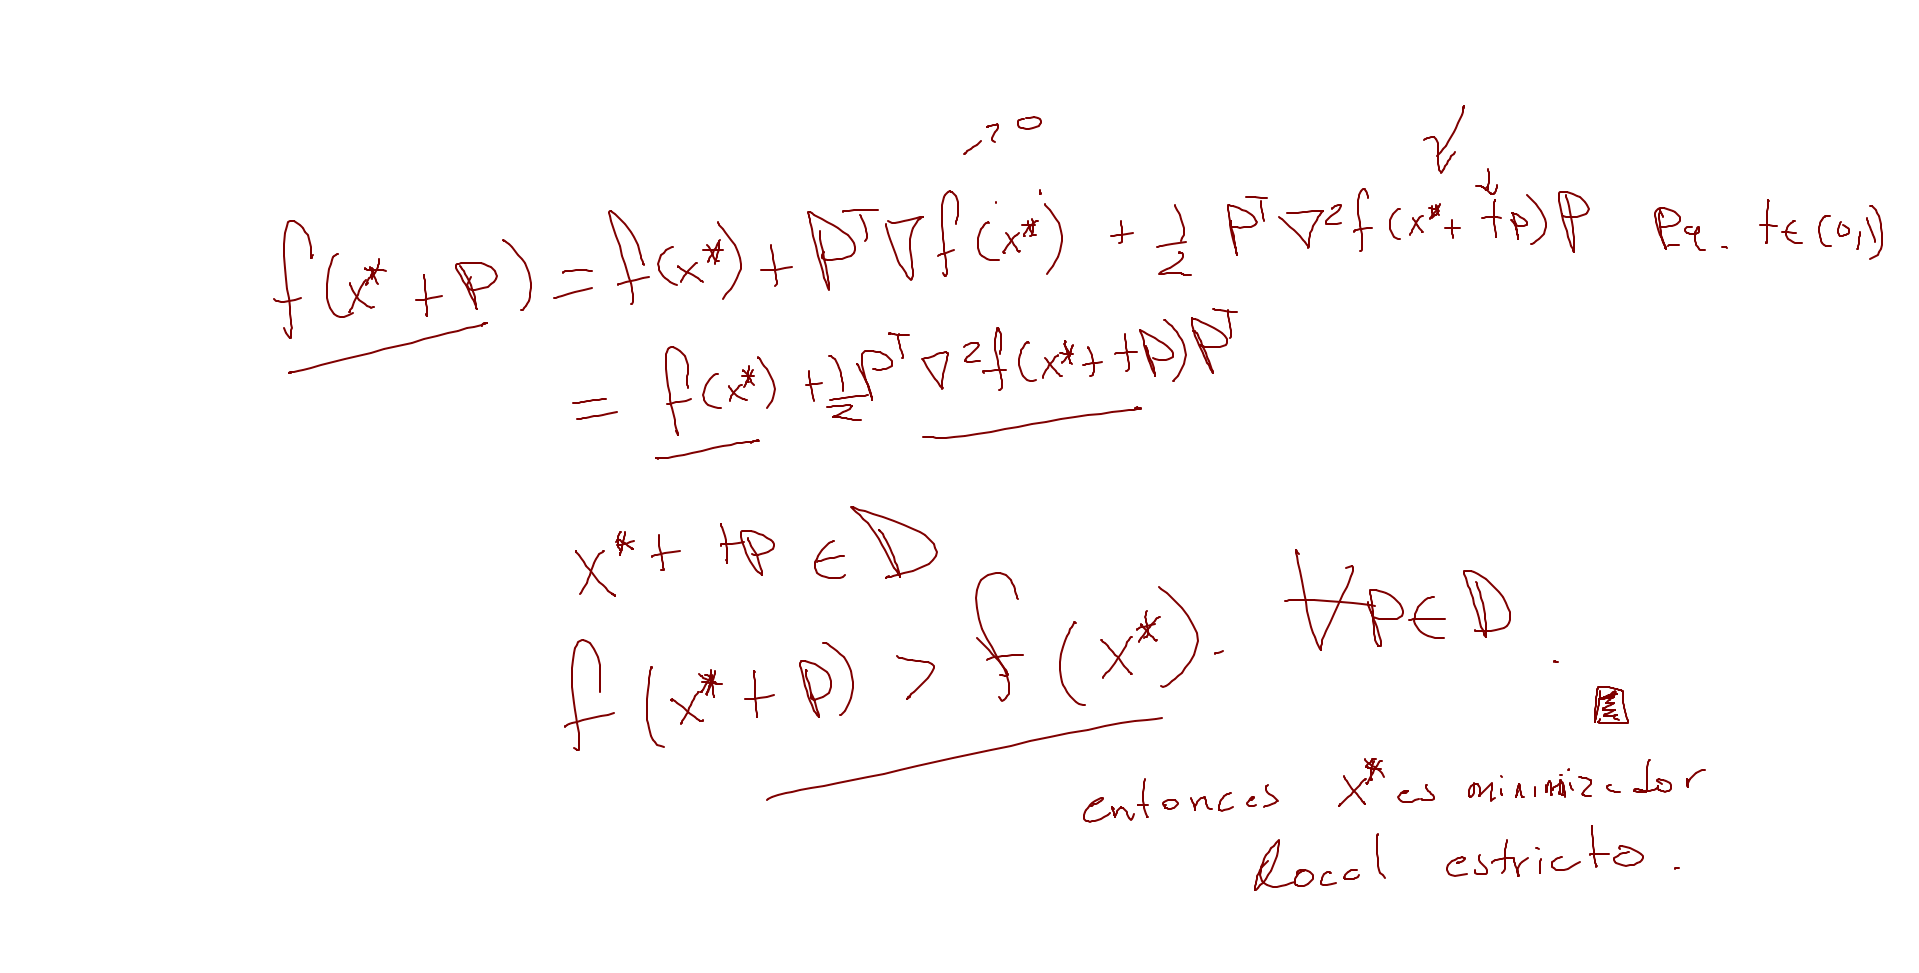 →0
f(x* + p) = f(x*) + p^T ∇f(x*) + 1/2 p^T ∇²f(x* + tp) p   t ∈ (0,1)
= f(x*) + 1/2 p^T ∇²f(x* + tp) p^T
x* + tp ∈ D
f(x* + p) > f(x*). ∀p ∈ D.
entonces x* es minimizador
local estricto.